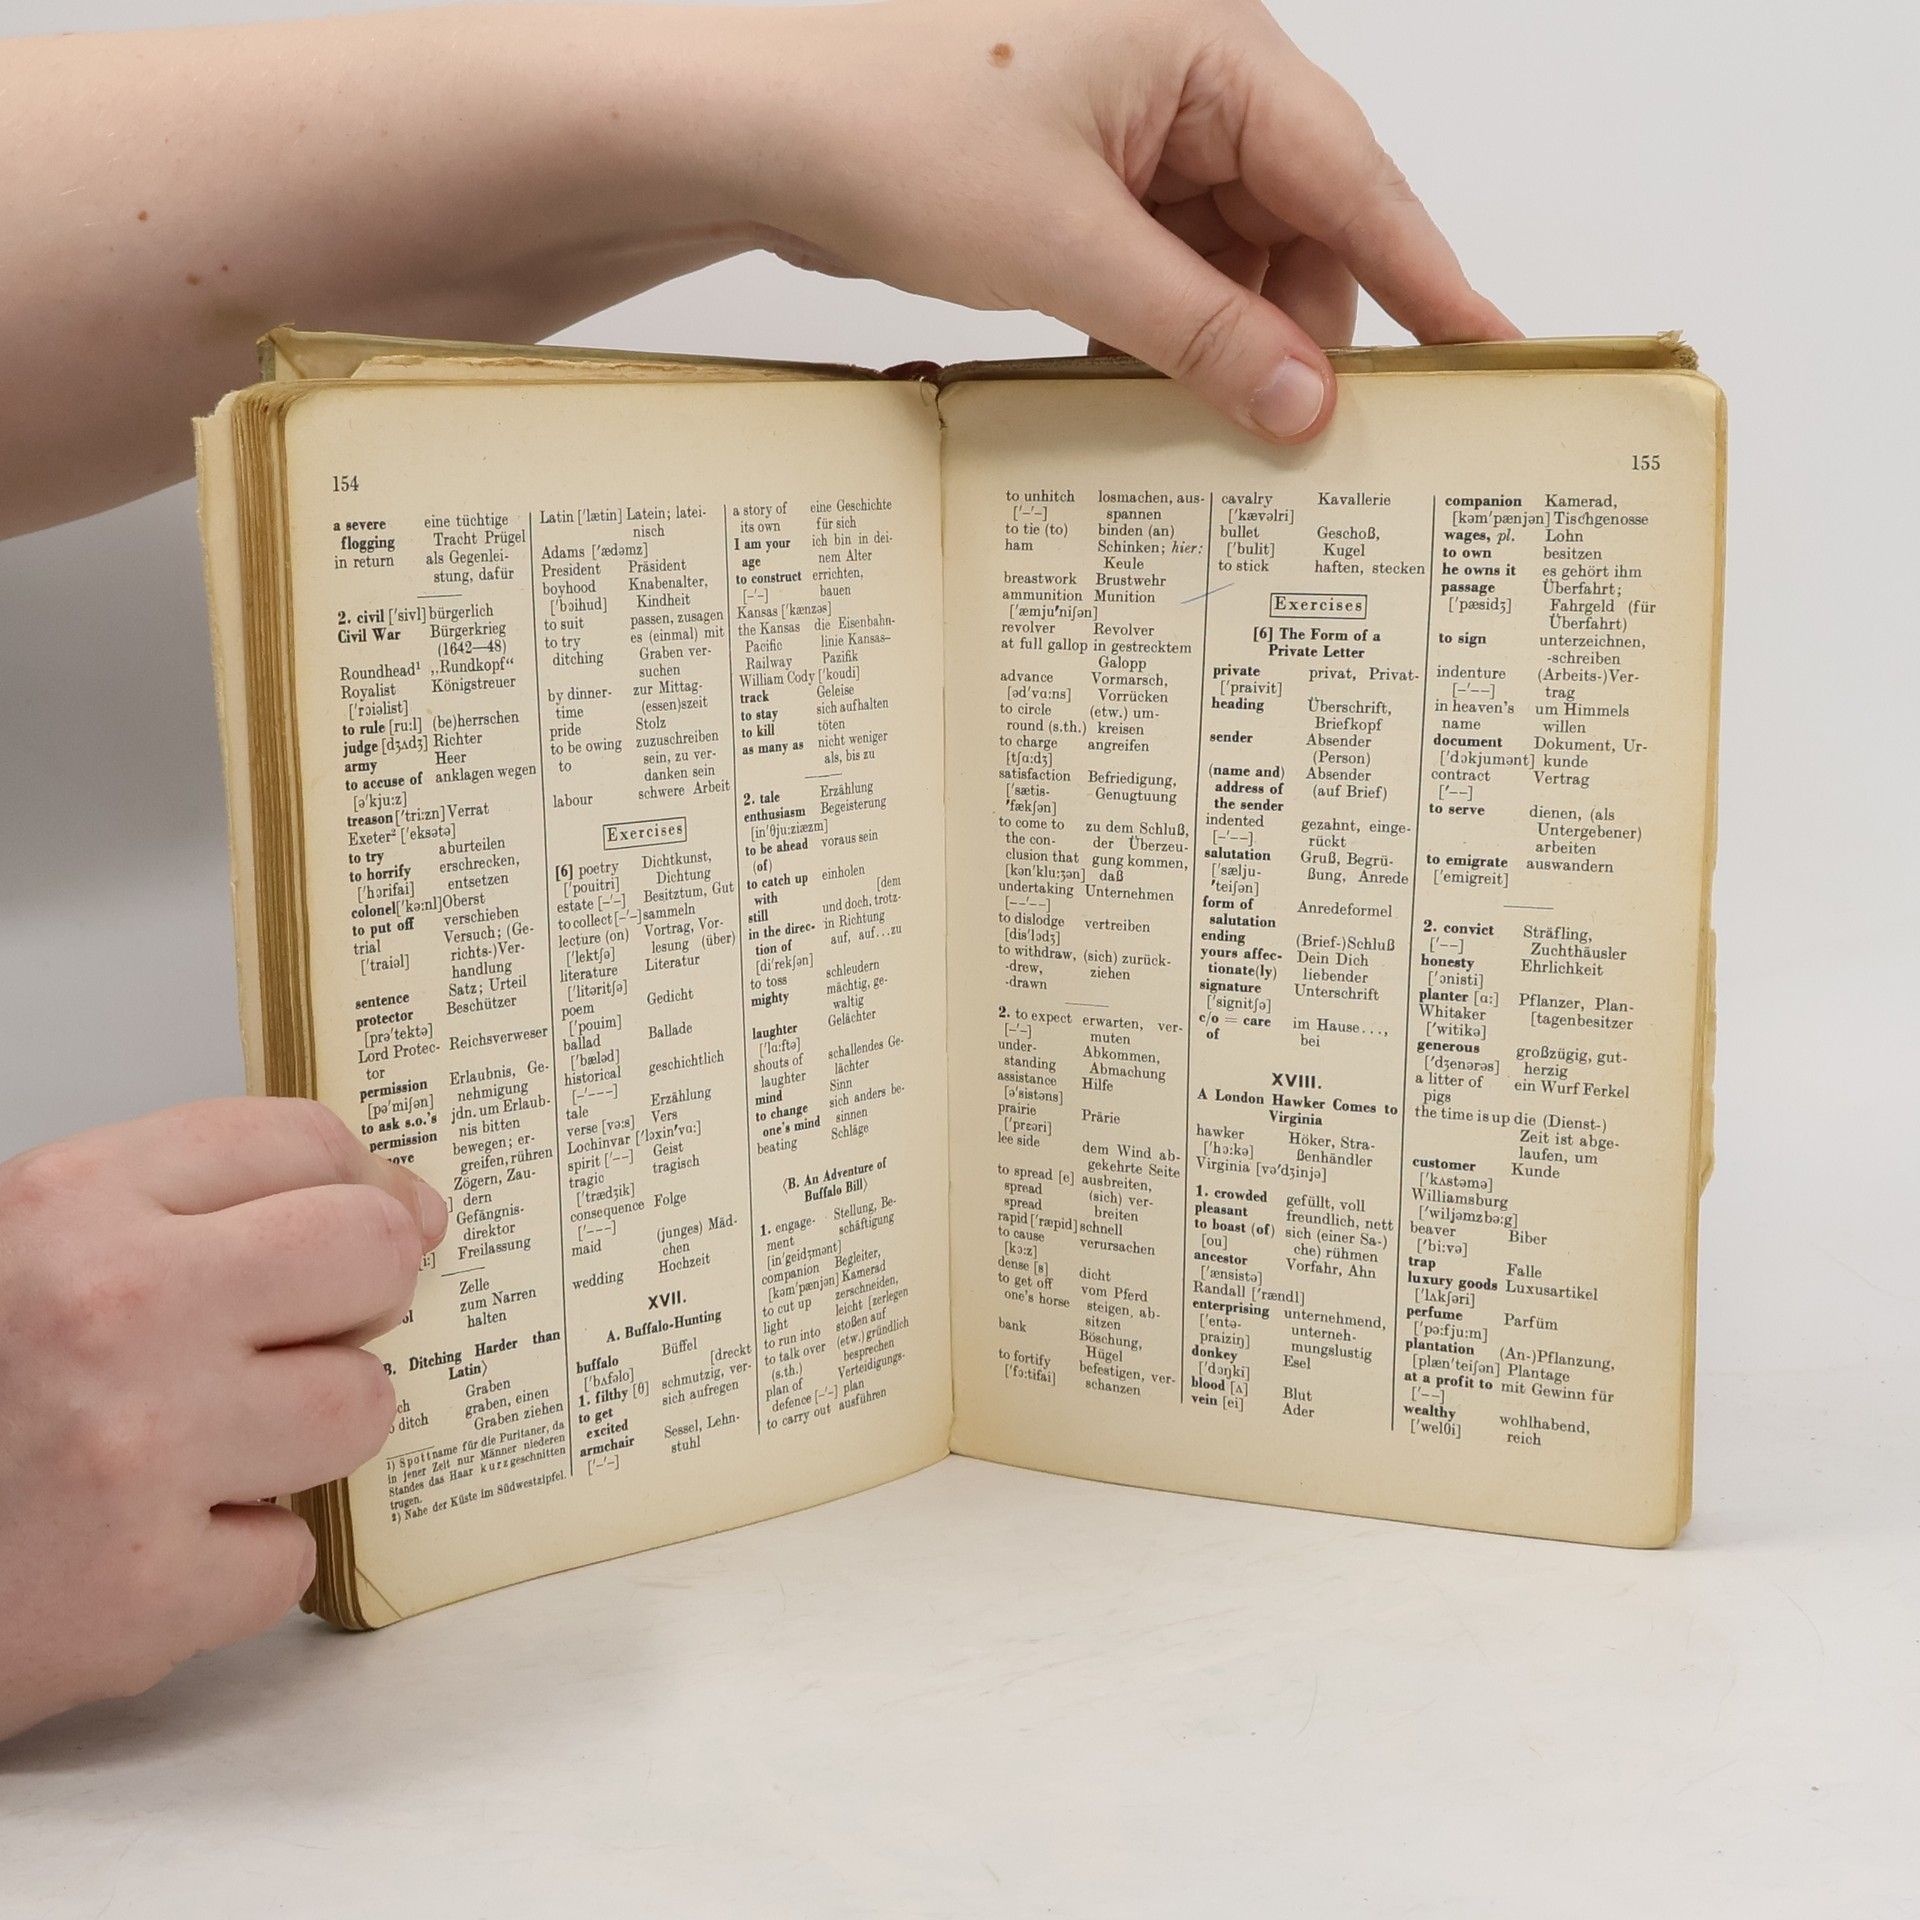 154
a severe eine tüchtige
flogging Tracht Prügel
in return als Gegenlei-
stung, dafür
2. civil ['sivl] bürgerlich
Civil War Bürgerkrieg
(1642—48)
Roundhead¹ „Rundkopf“
Royalist Königstreuer
['rɔiəlist]
to rule [ru:l] (be)herrschen
judge [dʒʌdʒ] Richter
army Heer
to accuse of anklagen wegen
[ə'kju:z]
treason ['tri:zn] Verrat
Exeter² ['eksətə]
to try aburteilen
to horrify erschrecken,
['hɔrifai] entsetzen
colonel ['kə:nl] Oberst
to put off verschieben
trial Versuch; (Ge-
['traiəl] richts-)Ver-
handlung
sentence Satz; Urteil
protector Beschützer
[prə'tektə]
Lord Protec- Reichsverweser
tor
permission Erlaubnis, Ge-
[pə'miʃən] nehmigung
to ask s.o.'s jdn. um Erlaub-
permission nis bitten
ove bewegen; er-
greifen, rühren
Zögern, Zau-
] dern
Gefängnis-
direktor
i:] Freilassung
Zelle
zum Narren
ol halten
B. Ditching Harder than
Latin⟩
Graben
ch graben, einen
ditch Graben ziehen
1) Spottname für die Puritaner, da
in jener Zeit nur Männer niederen
Standes das Haar kurzgeschnitten
trugen.
2) Nahe der Küste im Südwestzipfel.
Latin ['lætin] Latein; latei-
nisch
Adams ['ædəmz]
President Präsident
boyhood Knabenalter,
['bɔihud] Kindheit
to suit passen, zusagen
to try es (einmal) mit
ditching Graben ver-
suchen
by dinner- zur Mittag-
time (essen)szeit
pride Stolz
to be owing zuzuschreiben
to sein, zu ver-
danken sein
labour schwere Arbeit
Exercises
[6] poetry Dichtkunst,
['pouitri] Dichtung
estate [–'–] Besitztum, Gut
to collect [–'–] sammeln
lecture (on) Vortrag, Vor-
['lektʃə] lesung (über)
literature Literatur
['litəritʃə]
poem Gedicht
['pouim]
ballad Ballade
['bæləd]
historical geschichtlich
[–'–––]
tale Erzählung
verse [və:s] Vers
Lochinvar ['lɔxin'vɑ:]
spirit ['––] Geist
tragic tragisch
['trædʒik]
consequence Folge
['–––]
maid (junges) Mäd-
chen
wedding Hochzeit
XVII.
A. Buffalo-Hunting
buffalo Büffel
['bʌfəlo] [dreckt
1. filthy [θ] schmutzig, ver-
to get sich aufregen
excited
armchair Sessel, Lehn-
['–'–] stuhl
a story of eine Geschichte
its own für sich
I am your ich bin in dei-
age nem Alter
to construct errichten,
[–'–] bauen
Kansas ['kænzəs]
the Kansas die Eisenbahn-
Pacific linie Kansas–
Railway Pazifik
William Cody ['koudi]
track Geleise
to stay sich aufhalten
to kill töten
as many as nicht weniger
als, bis zu
2. tale Erzählung
enthusiasm Begeisterung
[in'θju:ziæzm]
to be ahead voraus sein
(of)
to catch up einholen
with [dem
still und doch, trotz-
in the direc- in Richtung
tion of auf, auf...zu
[di'rekʃən]
to toss schleudern
mighty mächtig, ge-
waltig
laughter Gelächter
['lɑ:ftə]
shouts of schallendes Ge-
laughter lächter
mind Sinn
to change sich anders be-
one's mind sinnen
beating Schläge
⟨B. An Adventure of
Buffalo Bill⟩
1. engage- Stellung, Be-
ment schäftigung
[in'geidʒmənt]
companion Begleiter,
[kəm'pænjən] Kamerad
to cut up zerschneiden,
light leicht [zerlegen
to run into stoßen auf
to talk over (etw.) gründlich
(s.th.) besprechen
plan of Verteidigungs-
defence [–'–] plan
to carry out ausführen
155
to unhitch losmachen, aus-
['–'–] spannen
to tie (to) binden (an)
ham Schinken; hier:
Keule
breastwork Brustwehr
ammunition Munition
['æmju'niʃən]
revolver Revolver
at full gallop in gestrecktem
Galopp
advance Vormarsch,
[əd'vɑ:ns] Vorrücken
to circle (etw.) um-
round (s.th.) kreisen
to charge angreifen
[tʃɑ:dʒ]
satisfaction Befriedigung,
['sætis- Genugtuung
'fækʃən]
to come to zu dem Schluß,
the con- der Überzeu-
clusion that gung kommen,
[kən'klu:ʒən] daß
undertaking Unternehmen
[––'––]
to dislodge vertreiben
[dis'lɔdʒ]
to withdraw, (sich) zurück-
-drew, ziehen
-drawn
2. to expect erwarten, ver-
[–'–] muten
under- Abkommen,
standing Abmachung
assistance Hilfe
[ə'sistəns]
prairie Prärie
['prɛəri]
lee side dem Wind ab-
gekehrte Seite
to spread [e] ausbreiten,
spread (sich) ver-
spread breiten
rapid ['ræpid] schnell
to cause verursachen
[kɔ:z]
dense [s] dicht
to get off vom Pferd
one's horse steigen, ab-
sitzen
bank Böschung,
Hügel
to fortify befestigen, ver-
['fɔ:tifai] schanzen
cavalry Kavallerie
['kævəlri]
bullet Geschoß,
['bulit] Kugel
to stick haften, stecken
Exercises
[6] The Form of a
Private Letter
private privat, Privat-
['praivit]
heading Überschrift,
Briefkopf
sender Absender
(Person)
(name and) Absender
address of (auf Brief)
the sender
indented gezahnt, einge-
[–'––] rückt
salutation Gruß, Begrü-
['sælju- ßung, Anrede
'teiʃən]
form of Anredeformel
salutation
ending (Brief-)Schluß
yours affec- Dein Dich
tionate(ly) liebender
signature Unterschrift
['signitʃə]
c/o = care im Hause...,
of bei
XVIII.
A London Hawker Comes to
Virginia
hawker Höker, Stra-
['hɔ:kə] ßenhändler
Virginia [və'dʒinjə]
1. crowded gefüllt, voll
pleasant freundlich, nett
to boast (of) sich (einer Sa-
[ou] che) rühmen
ancestor Vorfahr, Ahn
['ænsistə]
Randall ['rændl]
enterprising unternehmend,
['entə- unterneh-
praiziŋ] mungslustig
donkey Esel
['dɔŋki]
blood [ʌ] Blut
vein [ei] Ader
companion Kamerad,
[kəm'pænjən] Tischgenosse
wages, pl. Lohn
to own besitzen
he owns it es gehört ihm
passage Überfahrt;
['pæsidʒ] Fahrgeld (für
Überfahrt)
to sign unterzeichnen,
-schreiben
indenture (Arbeits-)Ver-
[–'––] trag
in heaven's um Himmels
name willen
document Dokument, Ur-
['dɔkjumənt] kunde
contract Vertrag
['––]
to serve dienen, (als
Untergebener)
arbeiten
to emigrate auswandern
['emigreit]
2. convict Sträfling,
['––] Zuchthäusler
honesty Ehrlichkeit
['ɔnisti]
planter [ɑ:] Pflanzer, Plan-
Whitaker [tagenbesitzer
['witikə]
generous großzügig, gut-
['dʒenərəs] herzig
a litter of ein Wurf Ferkel
pigs
the time is up die (Dienst-)
Zeit ist abge-
laufen, um
customer Kunde
['kʌstəmə]
Williamsburg
['wiljəmzbə:g]
beaver Biber
['bi:və]
trap Falle
luxury goods Luxusartikel
['lʌkʃəri]
perfume Parfüm
['pə:fju:m]
plantation (An-)Pflanzung,
[plæn'teiʃən] Plantage
at a profit to mit Gewinn für
['––]
wealthy wohlhabend,
['welθi] reich